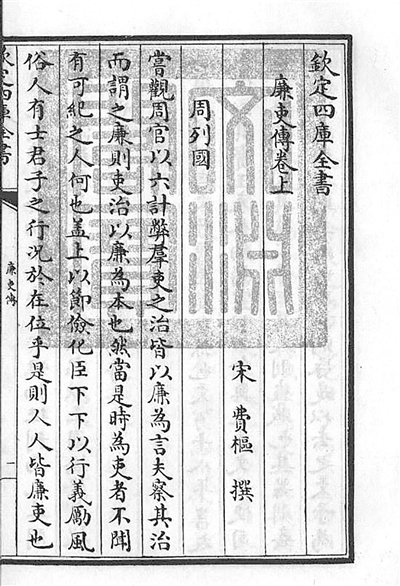 欽定四庫全書
廉吏傳卷上
宋 費樞 撰
周列國
嘗觀周官以六計弊羣吏之治皆以廉為言夫察其治
而謂之廉則吏治以廉為本也然當是時為吏者不聞
有可紀之人何也盖上以節儉化臣下下以行義勵風
俗人有士君子之行況於在位乎是則人人皆廉吏也
欽定四庫全書
廉吏傳
一